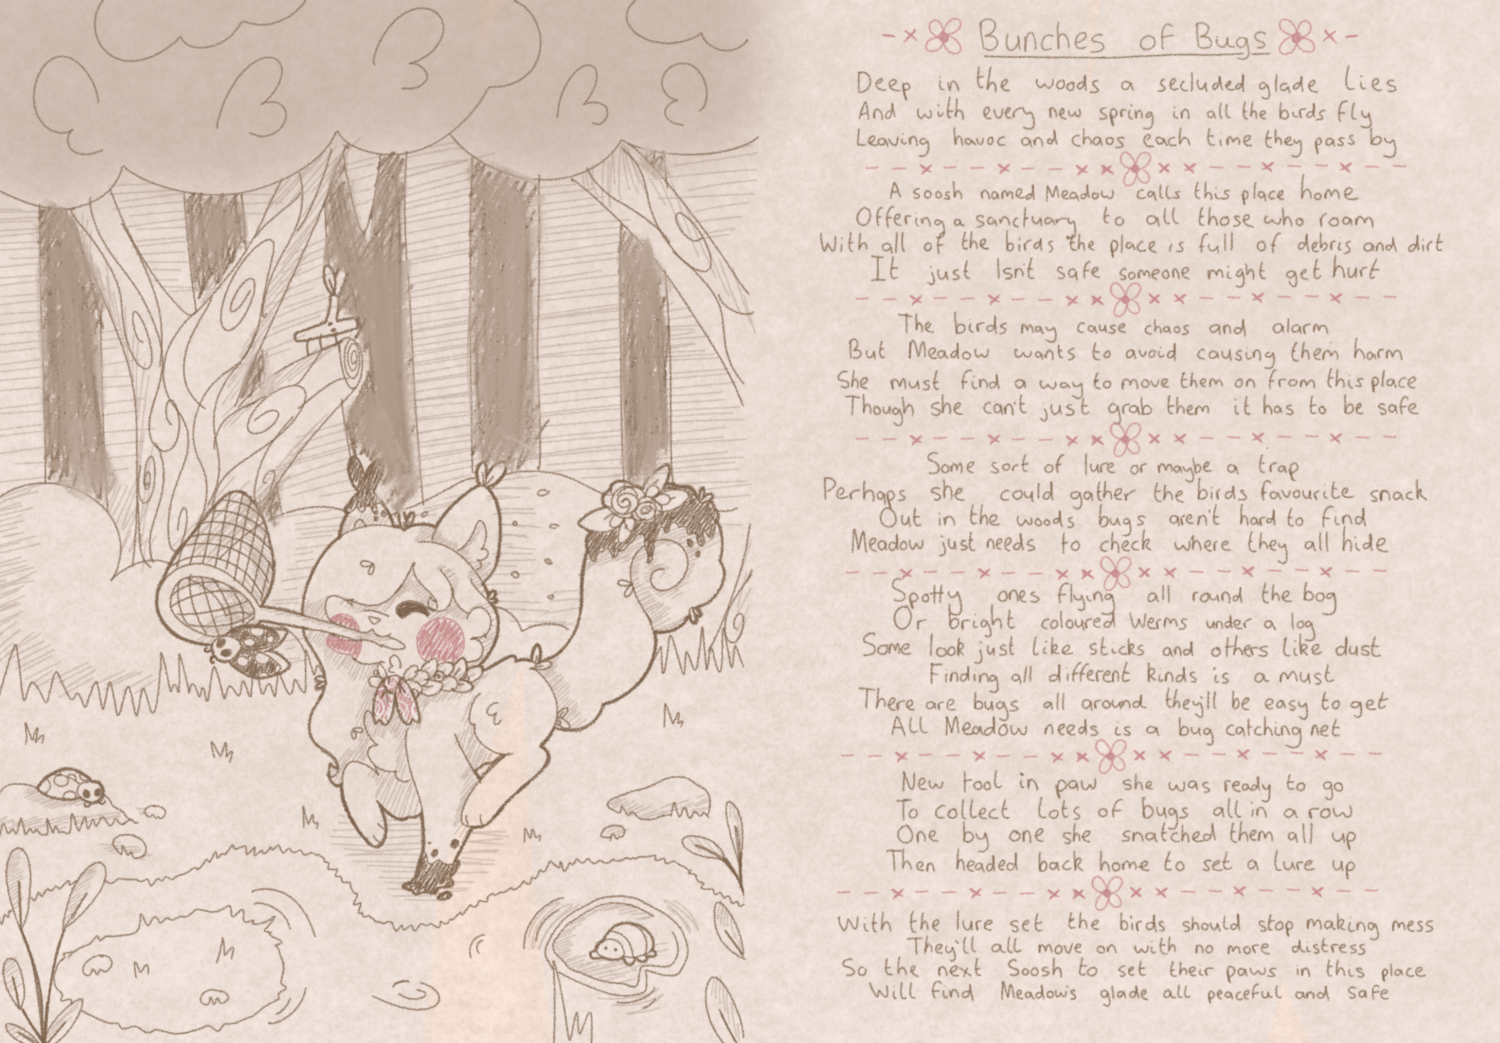 Bunches of Bugs
Deep in the woods a secluded glade lies
And with every new spring in all the birds fly
Leaving havoc and chaos each time they pass by
A soosh named Meadow calls this place home
Offering a sanctuary to all those who roam
With all of the birds the place is full of debris and dirt
It just Isn't safe someone might get hurt
The birds may cause chaos and alarm
But Meadow wants to avoid causing them harm
She must find a way to move them on from this place
Though she can't just grab them it has to be safe
Some sort of lure or maybe a trap
Perhaps she could gather the birds favourite snack
Out in the woods bugs aren't hard to find
Meadow just needs to check where they all hide
Spotty ones flying all round the bog
Or bright coloured Werms under a log
Some look just like sticks and others like dust
Finding all different kinds is a must
There are bugs all around they'll be easy to get
All Meadow needs is a bug catching net
New tool in paw she was ready to go
To collect lots of bugs all in a row
One by one she snatched them all up
Then headed back home to set a lure up
With the lure set the birds should stop making mess
They'll all move on with no more distress
So the next Soosh to set their paws in this place
Will find Meadow's glade all peaceful and safe